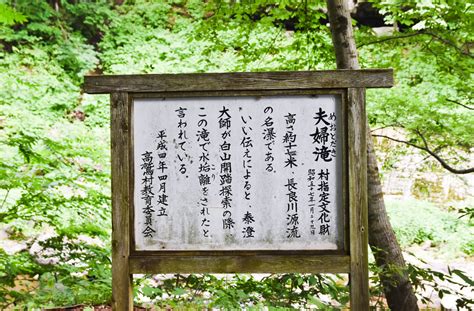 夫婦滝
めおとだき
村指定文化財
昭和五十七年一月二十九日
高さ約十七米、長良川源流
の名瀑である。
いい伝えによると、泰澄
大師が白山開踏探索の際
この滝で水垢離をされたと
こり
言われている。
平成四年四月建立
高鷲村教育委員会